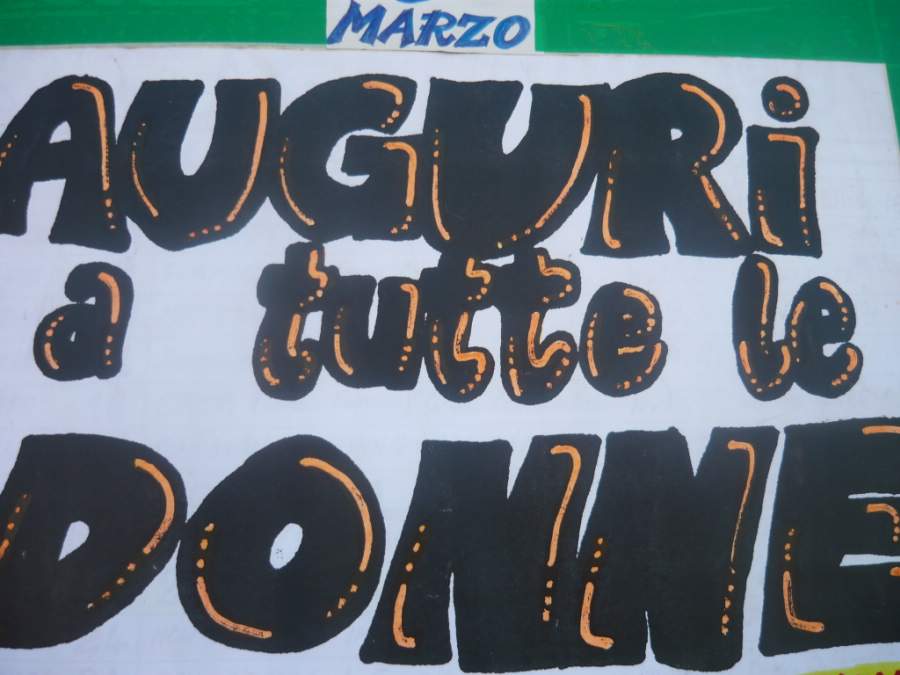 MARZO
AUGURi
a tutte le
DONNE